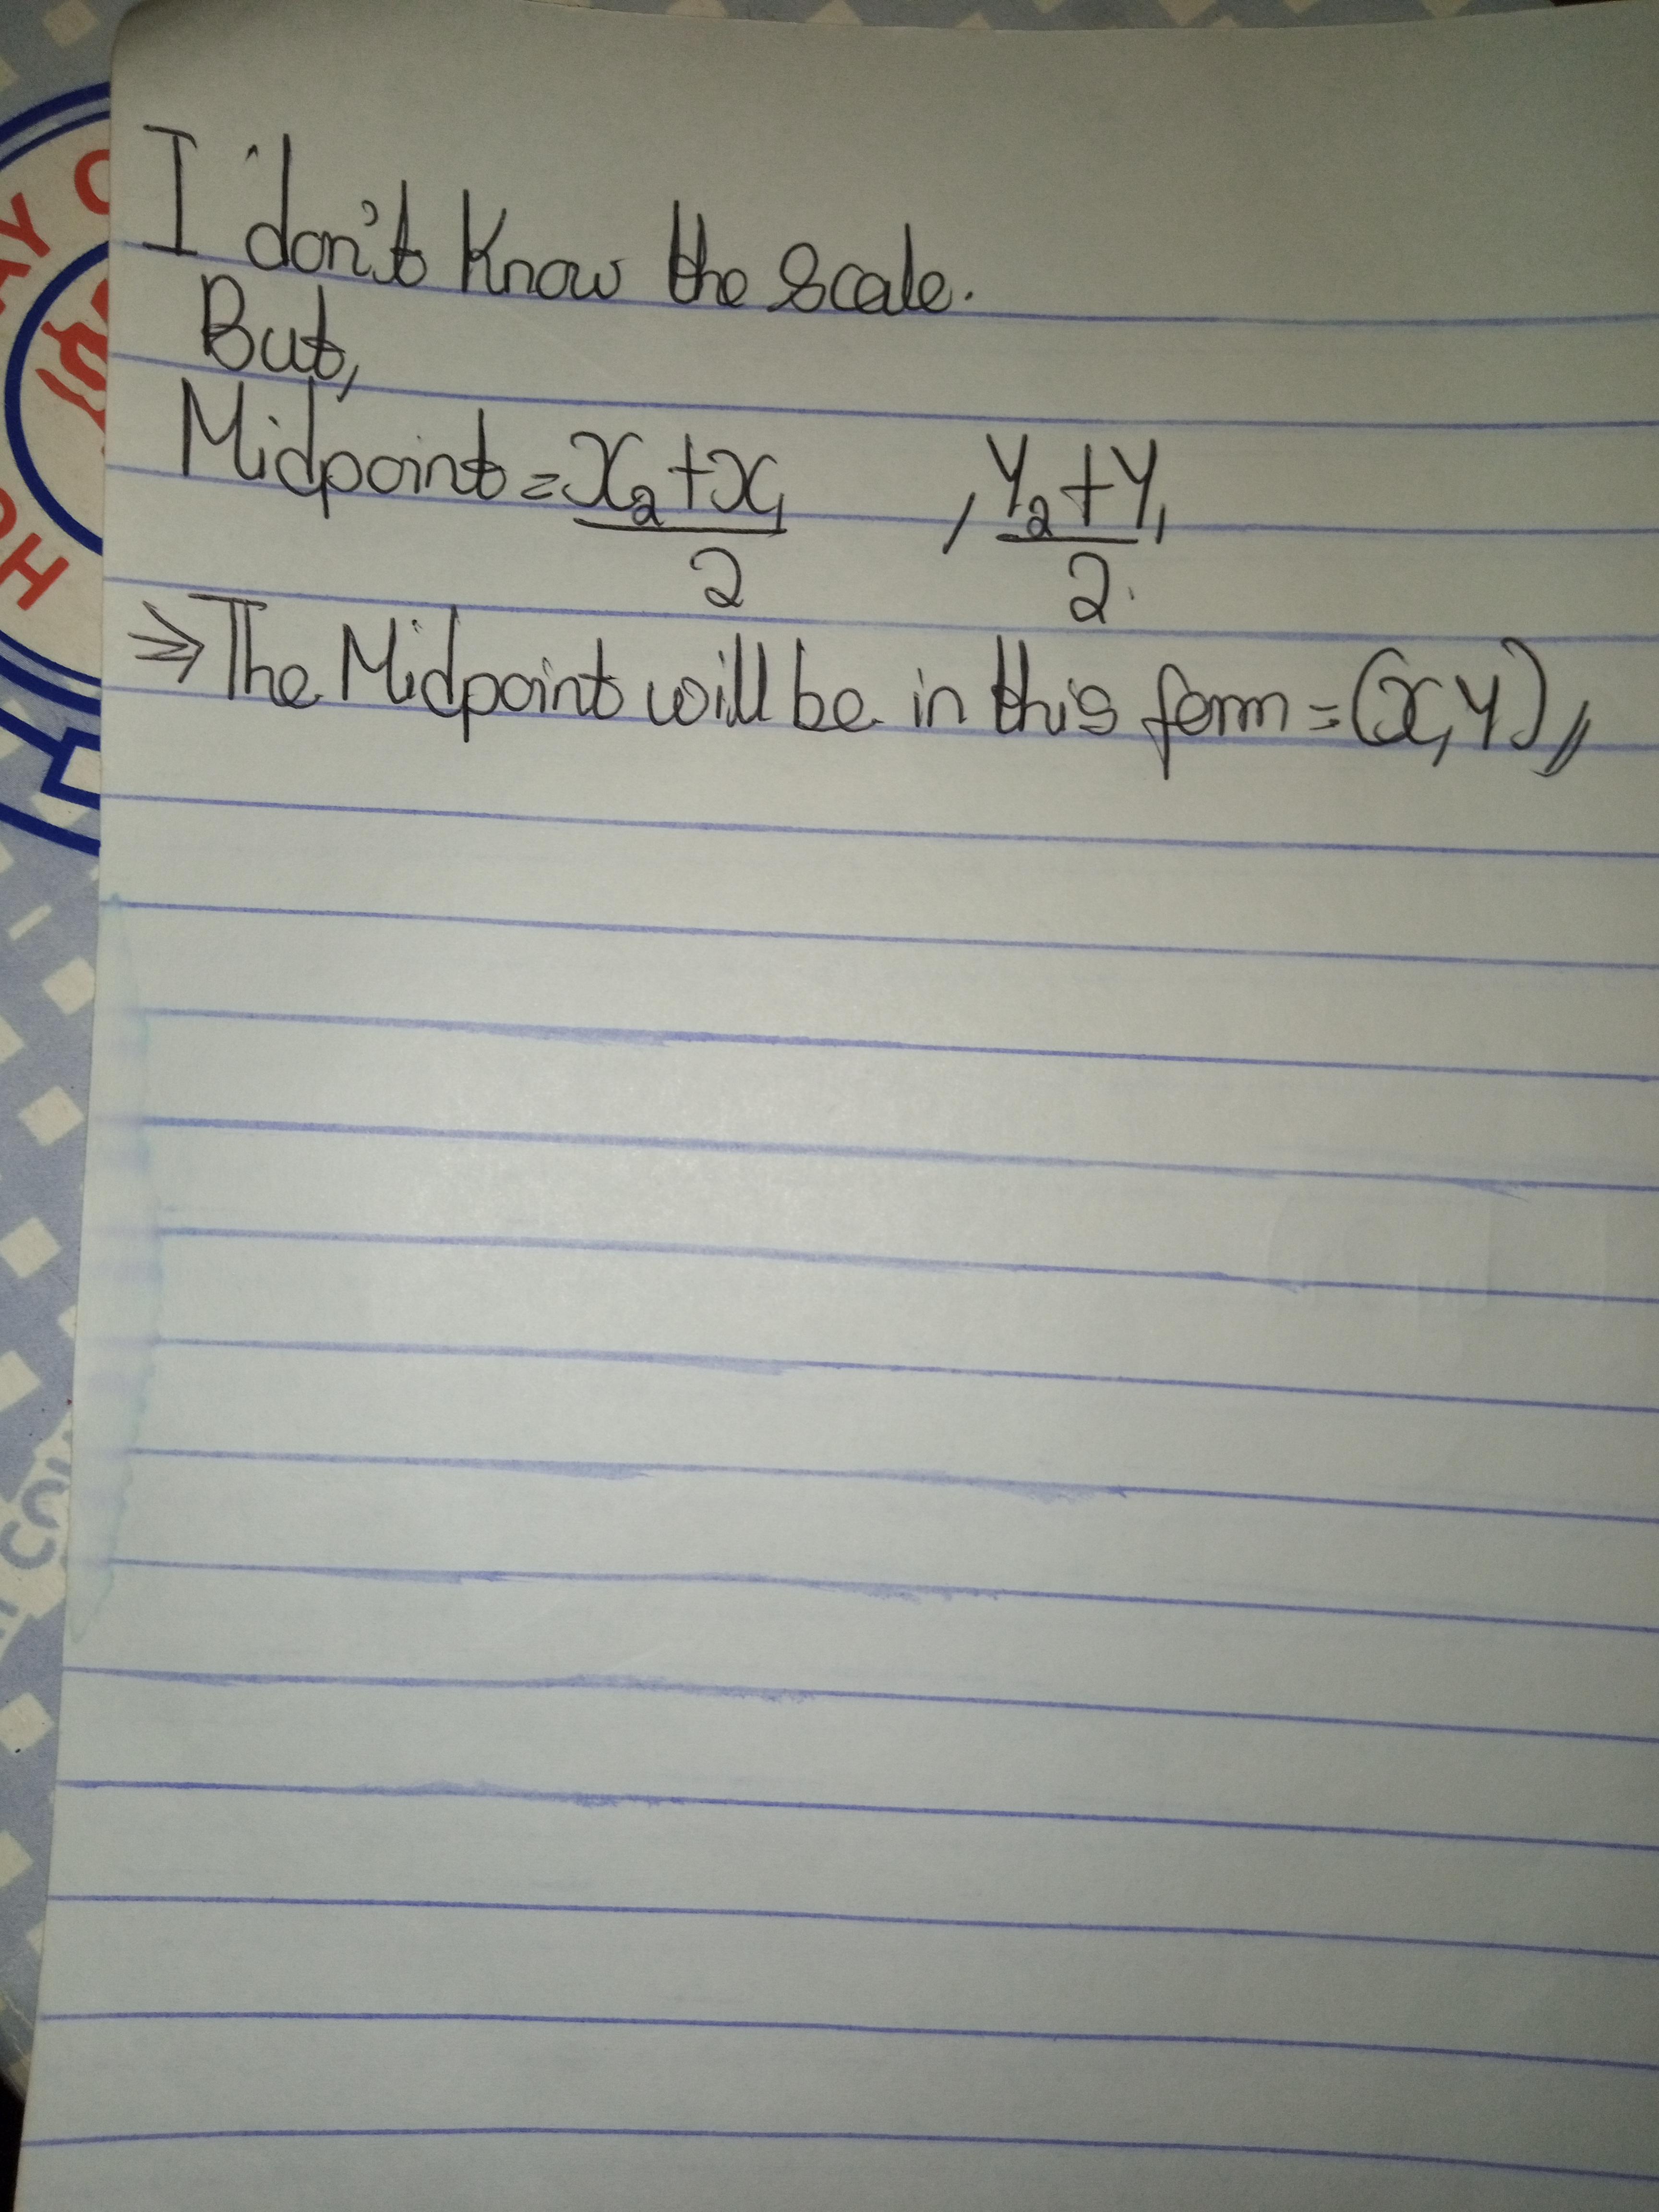 I don't Know the scale.
But,
Midpoint = x₂+x₁/2 , y₂+y₁/2.
⇒ The Midpoint will be in this form = (x,y)//
AY C
HO
COU